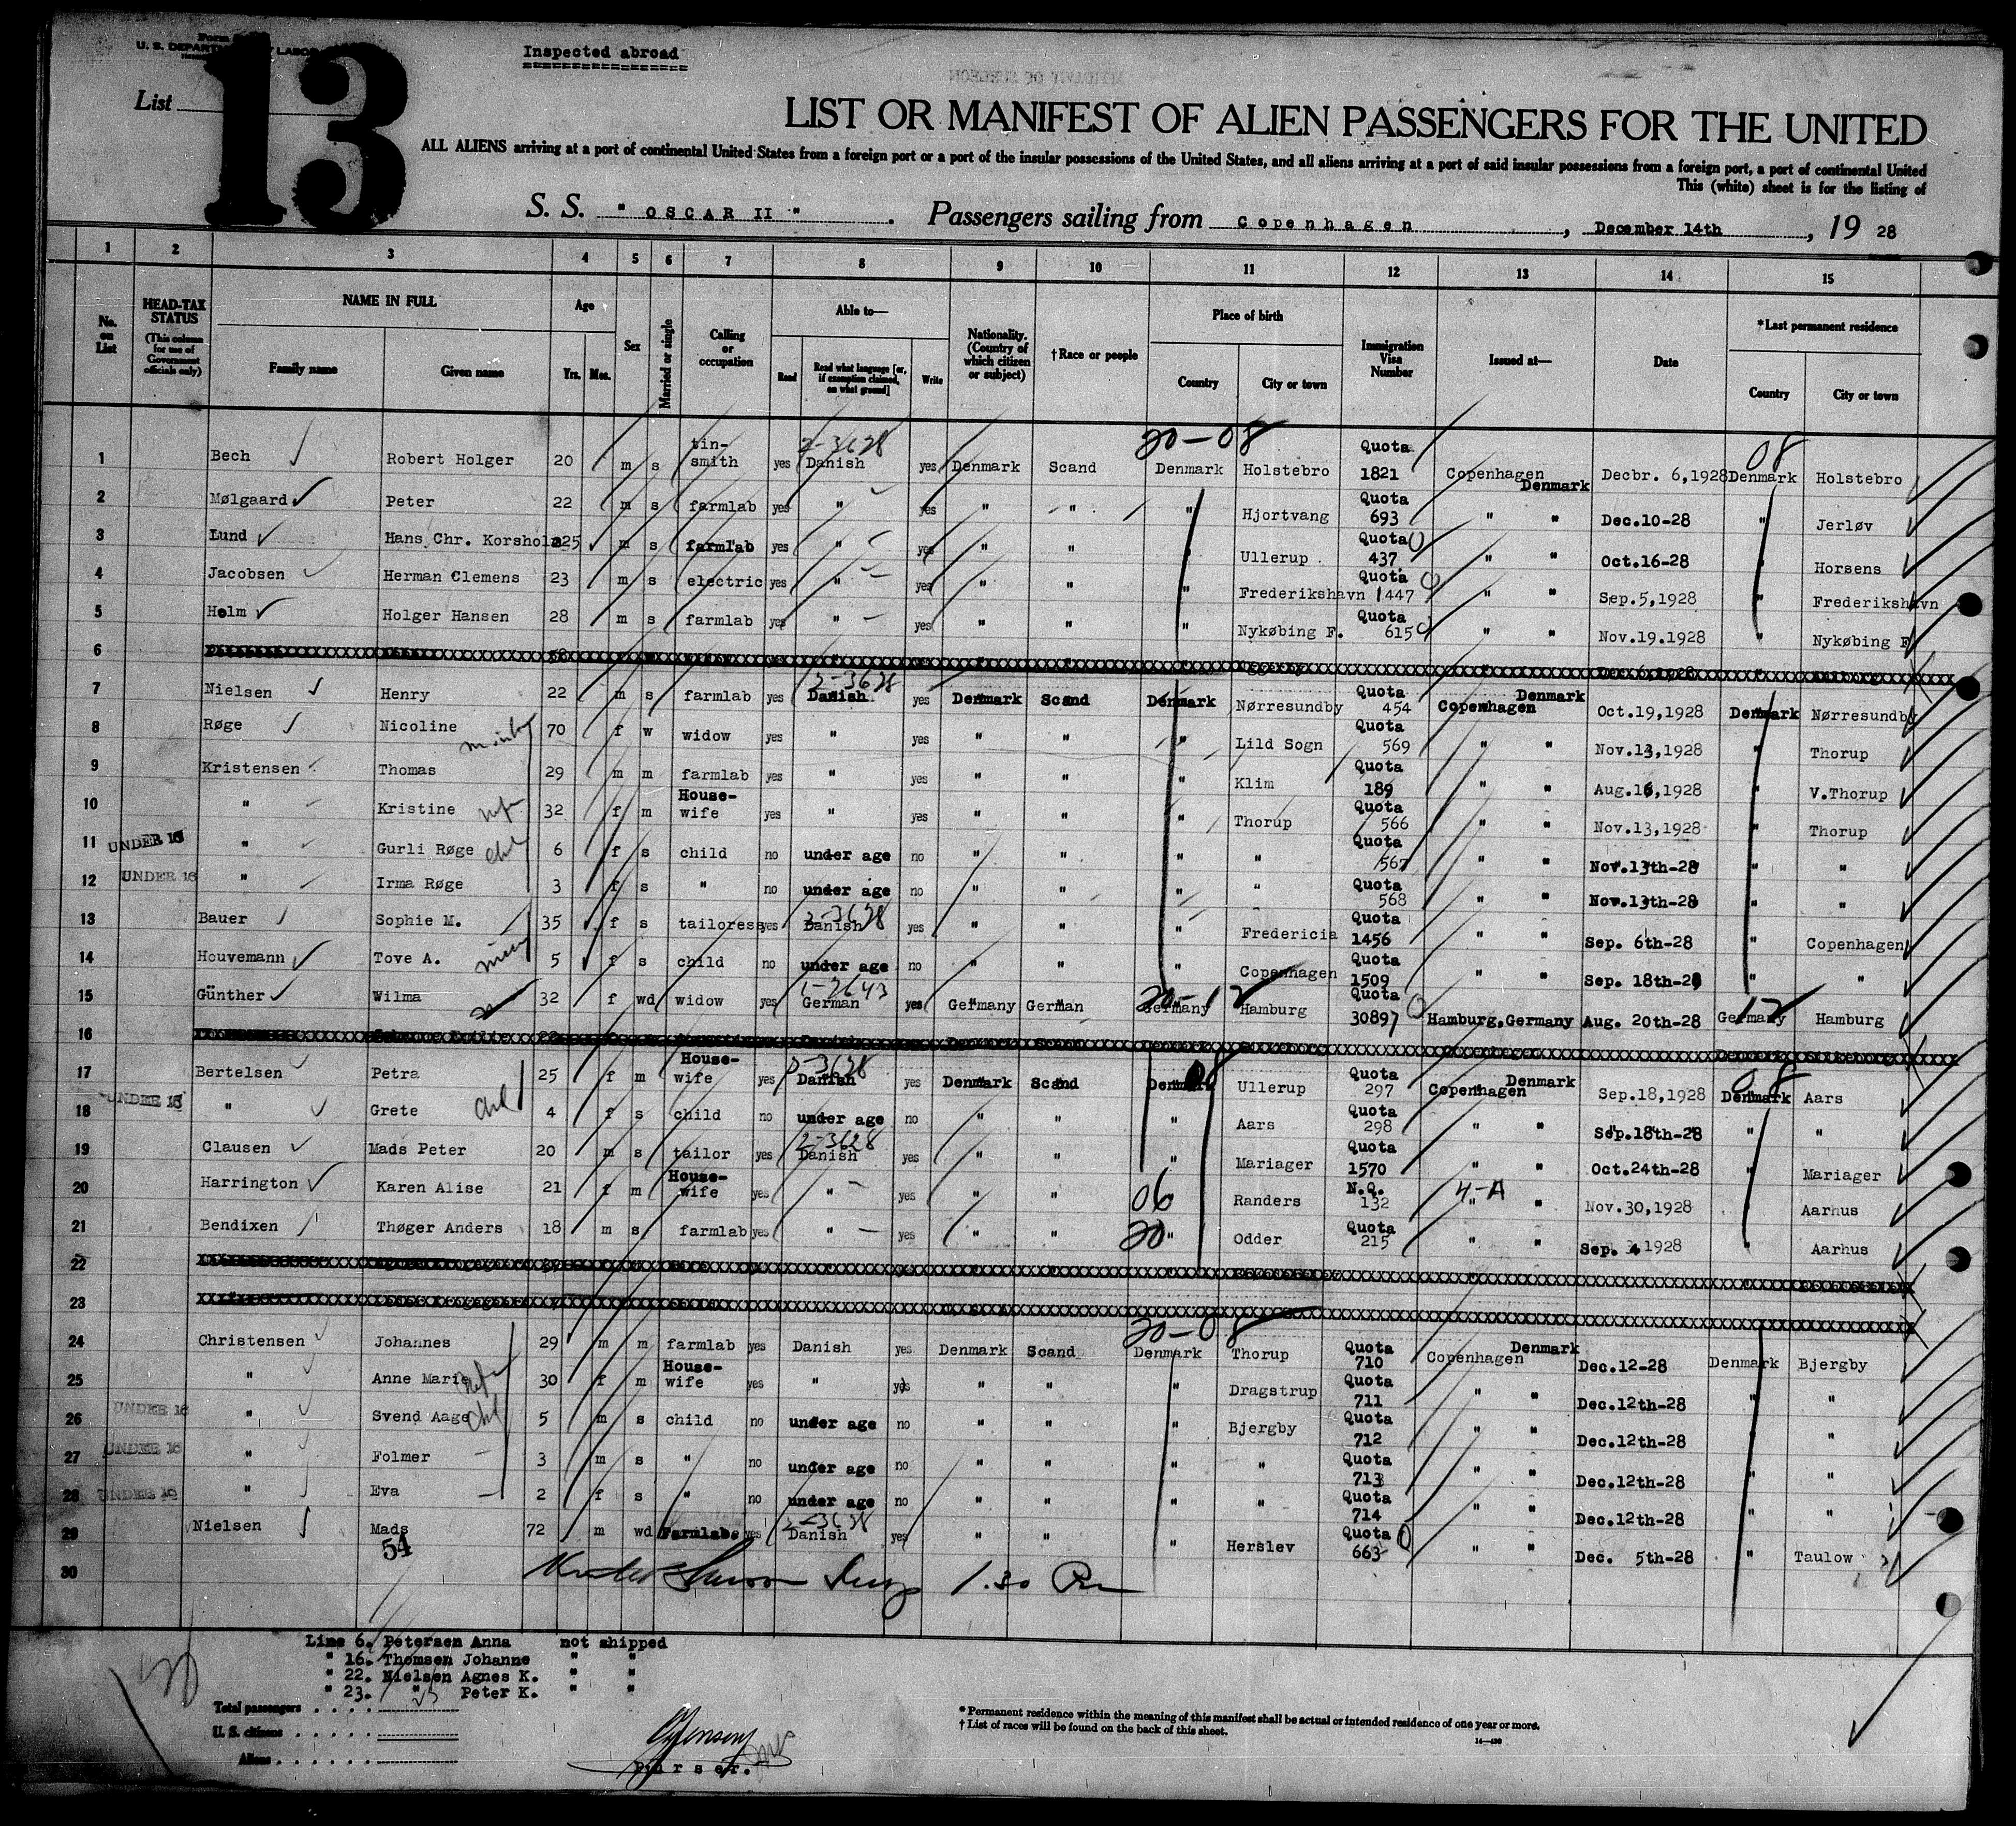 Form
U. S. DEPARTMENT OF LABOR
Inspected abroad
List 13
LIST OR MANIFEST OF ALIEN PASSENGERS FOR THE UNITED
ALL ALIENS arriving at a port of continental United States from a foreign port or a port of the insular possessions of the United States, and all aliens arriving at a port of said insular possessions from a foreign port, a port of continental United
This (white) sheet is for the listing of
S. S. " OSCAR II ". Passengers sailing from Copenhagen, December 14th, 19 28
1 2 3 4 5 6 7 8 9 10 11 12 13 14 15
No. on List
HEAD-TAX STATUS (This column for use of Government officials only)
NAME IN FULL Family name Given name
Age Yrs. Mos.
Sex
Married or single
Calling or occupation
Able to— Read Read what language [or, if exemption claimed, on what ground] Write
Nationality. (Country of which citizen or subject)
†Race or people
Place of birth Country City or town
Immigration Visa Number
Issued at—
Date
*Last permanent residence Country City or town
20-08
2-3628
08
1 Bech Robert Holger 20 m s tin-smith yes Danish yes Denmark Scand Denmark Holstebro Quota 1821 Copenhagen Denmark Decbr. 6,1928 Denmark Holstebro
2 Mølgaard Peter 22 m s farmlab yes " yes " " " Hjortvang Quota 693 " " Dec.10-28 " Jerløv
3 Lund Hans Chr. Korsholm 25 m s farmlab yes " yes " " " Ullerup Quota 437 " " Oct.16-28 " Horsens
4 Jacobsen Herman Clemens 23 m s electric yes " yes " " " Frederikshavn Quota 1447 " " Sep.5,1928 " Frederikshavn
5 Holm Holger Hansen 28 m s farmlab yes " yes " " " Nykøbing F. Quota 615 " " Nov.19.1928 " Nykøbing F
6
2-3628
7 Nielsen Henry 22 m s farmlab yes Danish yes Denmark Scand Denmark Nørresundby Quota 454 Copenhagen Denmark Oct.19,1928 Denmark Nørresundby
8 Røge Nicoline 70 f w widow yes " yes " " " Lild Sogn Quota 569 " " Nov.13,1928 " Thorup
9 Kristensen Thomas 29 m m farmlab yes " yes " " " Klim Quota 189 " " Aug.16,1928 " V.Thorup
10 " Kristine 32 f m House-wife yes " yes " " " Thorup Quota 566 " " Nov.13,1928 " Thorup
11 UNDER 16 " Gurli Røge 6 f s child no under age no " " " " Quota 567 " " Nov.13th-28 " "
12 UNDER 16 " Irma Røge 3 f s " no under age no " " " " Quota 568 " " Nov.13th-28 " "
2-3628
13 Bauer Sophie M. 35 f s tailoress yes Danish yes " " " Fredericia Quota 1456 " " Sep. 6th-28 " Copenhagen
14 Houvemann Tove A. 5 f s child no under age no " " " Copenhagen Quota 1509 " " Sep. 18th-28 " "
20-12
12
15 Günther Wilma 32 f wd widow yes German yes Germany German Germany Hamburg Quota 30897 Hamburg,Germany Aug. 20th-28 Germany Hamburg
16
2-3628
08
08
17 Bertelsen Petra 25 f m House-wife yes Danish yes Denmark Scand Denmark Ullerup Quota 297 Copenhagen Denmark Sep.18,1928 Denmark Aars
18 UNDER 16 " Grete chd 4 f s child no under age no " " " Aars Quota 298 " " Sep.18th-28 " "
2-3628
19 Clausen Mads Peter 20 m s tailor yes Danish yes " " " Mariager Quota 1570 " " Oct.24th-28 " Mariager
20 Harrington Karen Alise 21 f m House-wife yes " yes " " 06 Randers N.Q. 132 4-A " " Nov.30,1928 Aarhus
21 Bendixen Thøger Anders 18 m s farmlab yes " yes " " 20 " Odder Quota 215 " " Sep. 4 1928 " Aarhus
22
23
20-08
24 Christensen Johannes 29 m m farmlab yes Danish yes Denmark Scand Denmark Thorup Quota 710 Copenhagen Denmark Dec.12-28 Denmark Bjergby
25 " Anne Marie 30 f m House-wife yes " yes " " " Dragstrup Quota 711 " " Dec.12th-28 " "
26 UNDER 16 " Svend Aage chd 5 m s child no under age no " " " Bjergby Quota 712 " " Dec.12th-28 "
27 UNDER 16 " Folmer 3 m s " no under age no " " " " Quota 713 " " Dec.12th-28 " "
28 UNDER 16 " Eva 2 f s " no under age no " " " " Quota 714 " " Dec.12th-28 " "
2-3628
29 Nielsen Mads 72 m wd Farmlab yes Danish yes " " " Herslev Quota 663 " " Dec. 5th-28 " Taulow
54
30 1.30 Pm
Line 6. Petersen Anna not shipped
" 16. Thomsen Johanne " "
" 22. Nielsen Agnes K. " "
" 23. " Peter K. " "
Total passengers
U. S. citizens
Aliens
Purser.
* Permanent residence within the meaning of this manifest shall be actual or intended residence of one year or more.
† List of races will be found on the back of this sheet.